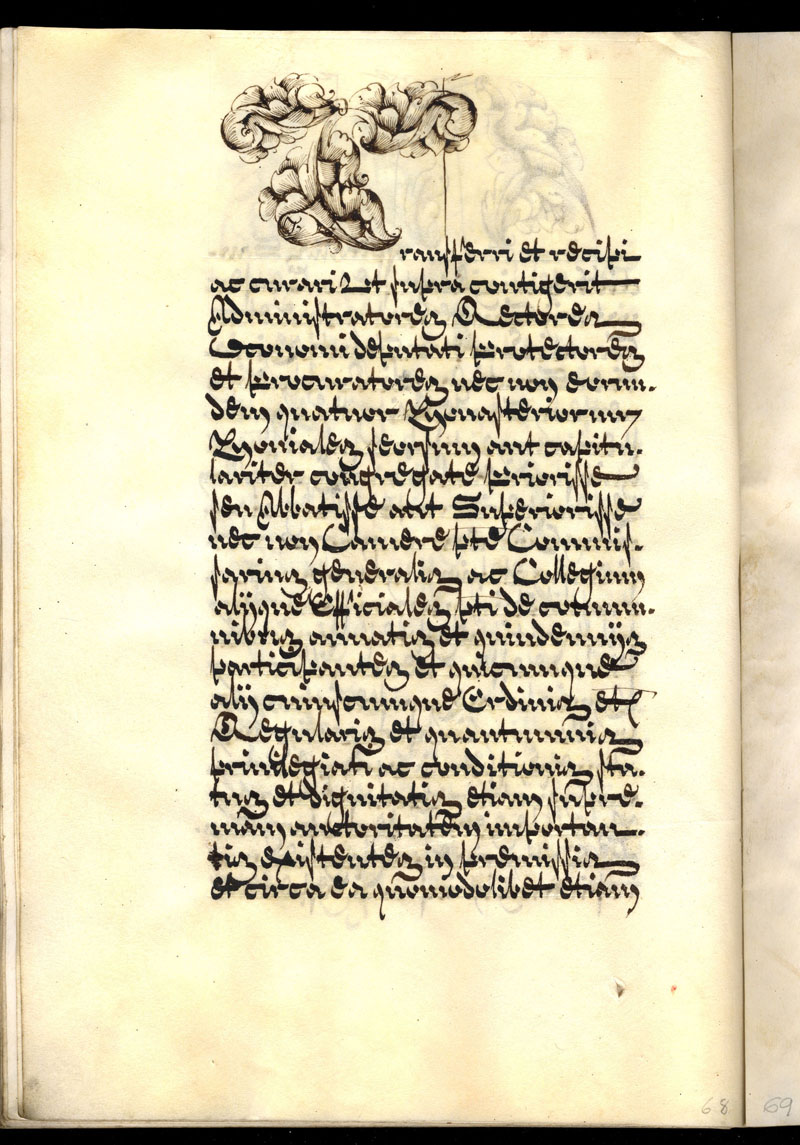 Transferri et recipi
ac curari Ut supra contigerit
Administratores Rectores
Economi deputati protectores
et procuratores nec non eorun.
dem quatuor Monasteriorum
Moniales seorsum aut capitu.
lariter congregate priorisse
seu Abbatisse aut Superiorisse
nec non Camere pte Commis.
sarius generalis ac Collegium
alijque Officiales pti de commu.
nibus annatis et quindennijs
participantes et quicunque
alij cuiuscunque Ordinis et
Regularis et quantumuis
priuilegiati ac conditionis sta.
tus et dignitatis etiam supre.
mam auctoritatem importan.
tis existentes in premissis
et circa ea quomodolibet etiam
68
69